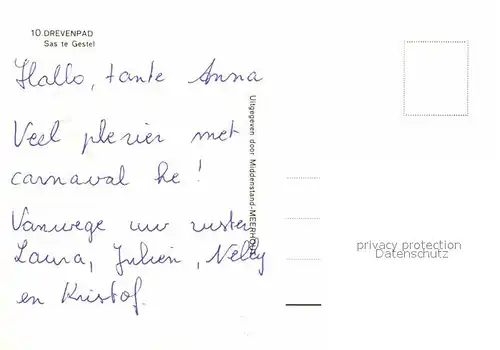 10. DREVENPAD
Sas te Gestel
Hallo, tante Anna
Veel plezier met
carnaval he!
Vanwege uw zuster
Laura, Julien, Nelly
en Kristof.
Uitgegeven door Middenstand-MEERHOUT
privacy protection
Datenschutz